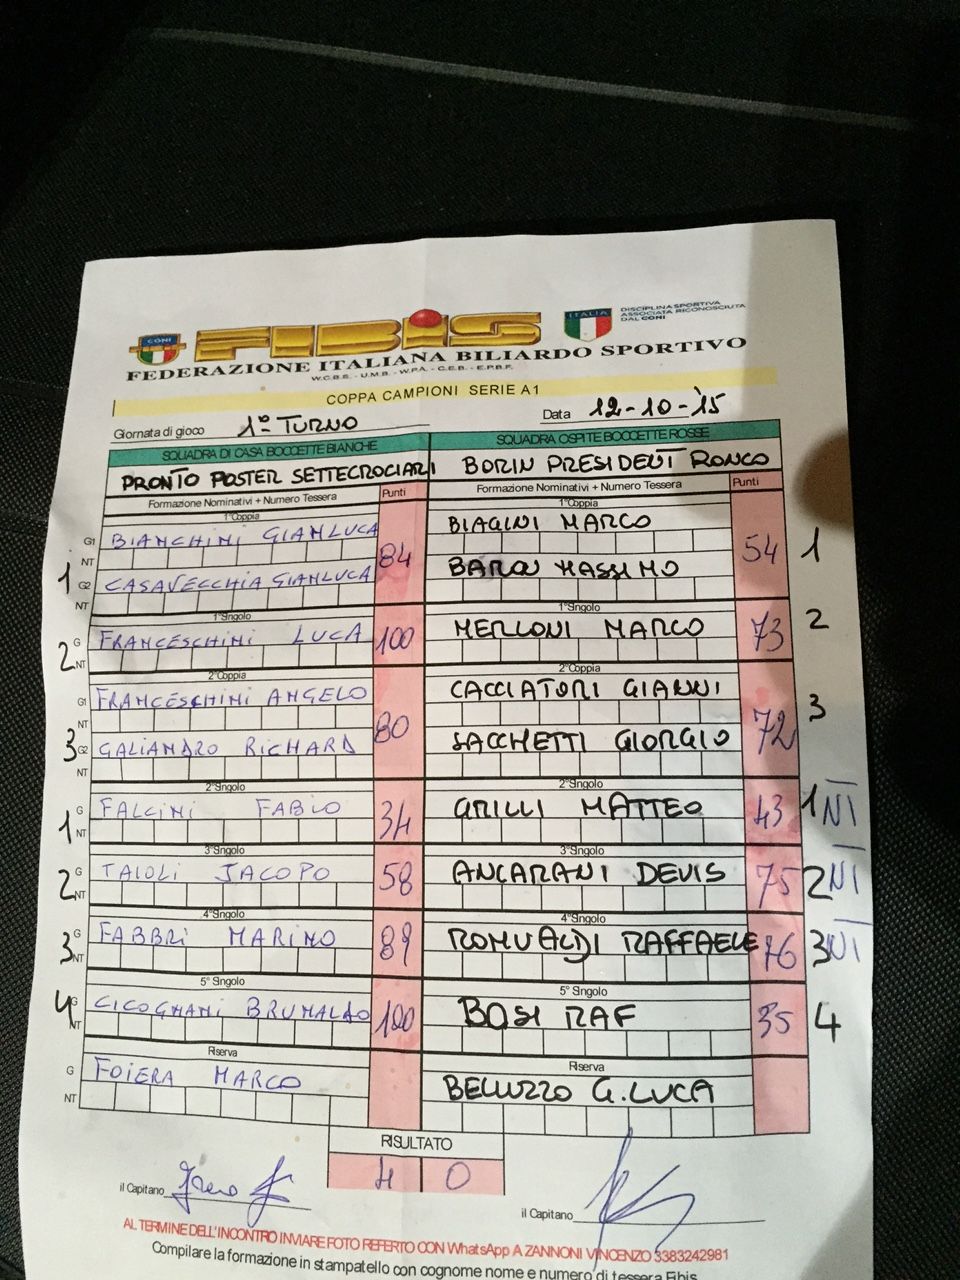 CONI
FIBIS
ITALIA
DISCIPLINA SPORTIVA
ASSOCIATA RICONOSCIUTA
DAL CONI
FEDERAZIONE ITALIANA BILIARDO SPORTIVO
W.C.B.S. - U.M.B. - W.P.A. - C.E.B. - E.P.B.F.
COPPA CAMPIONI SERIE A1
Giornata di gioco 1° TURNO Data 12-10-'15
SQUADRA DI CASA BOCCETTE BIANCHE SQUADRA OSPITE BOCCETTE ROSSE
PRONTO POSTER SETTECROCIARI BORIN PRESIDENT RONCO
Formazione Nominativi + Numero Tessera Punti Formazione Nominativi + Numero Tessera Punti
1°Coppia 1°Coppia
G1 BIANCHINI GIANLUCA 84 BIAGINI MARCO 54 1
NT
1 G2 CASAVECCHIA GIANLUCA BARON MASSIMO
NT
1°Singolo 1°Singolo
2 G FRANCESCHINI LUCA 100 MERLONI MARCO 73 2
NT
2°Coppia 2°Coppia
G1 FRANCESCHINI ANGELO 80 CACCIATORI GIANNI 72 3
NT
3 G2 GALIANDRO RICHARD SACCHETTI GIORGIO
NT
2°Singolo 2°Singolo
1 G FALCINI FABIO 34 GRILLI MATTEO 43 1 NI
NT
3°Singolo 3°Singolo
2 G TAIOLI JACOPO 58 ANCARANI DEVIS 75 2 NI
NT
4°Singolo 4°Singolo
3 G FABBRI MARINO 89 ROMUALDI RAFFAELE 76 3 NI
NT
5° Singolo 5° Singolo
4 G CICOGNANI BRUNALDO 100 BOSI RAF 35 4
NT
Riserva Riserva
G FOIERA MARCO BELUZZO G.LUCA
NT
RISULTATO
4 0
il Capitano il Capitano
AL TERMINE DELL'INCONTRO INVIARE FOTO REFERTO CON WhatsApp A ZANNONI VINCENZO 3383242981
Compilare la formazione in stampatello con cognome nome e numero di tessera Fibis